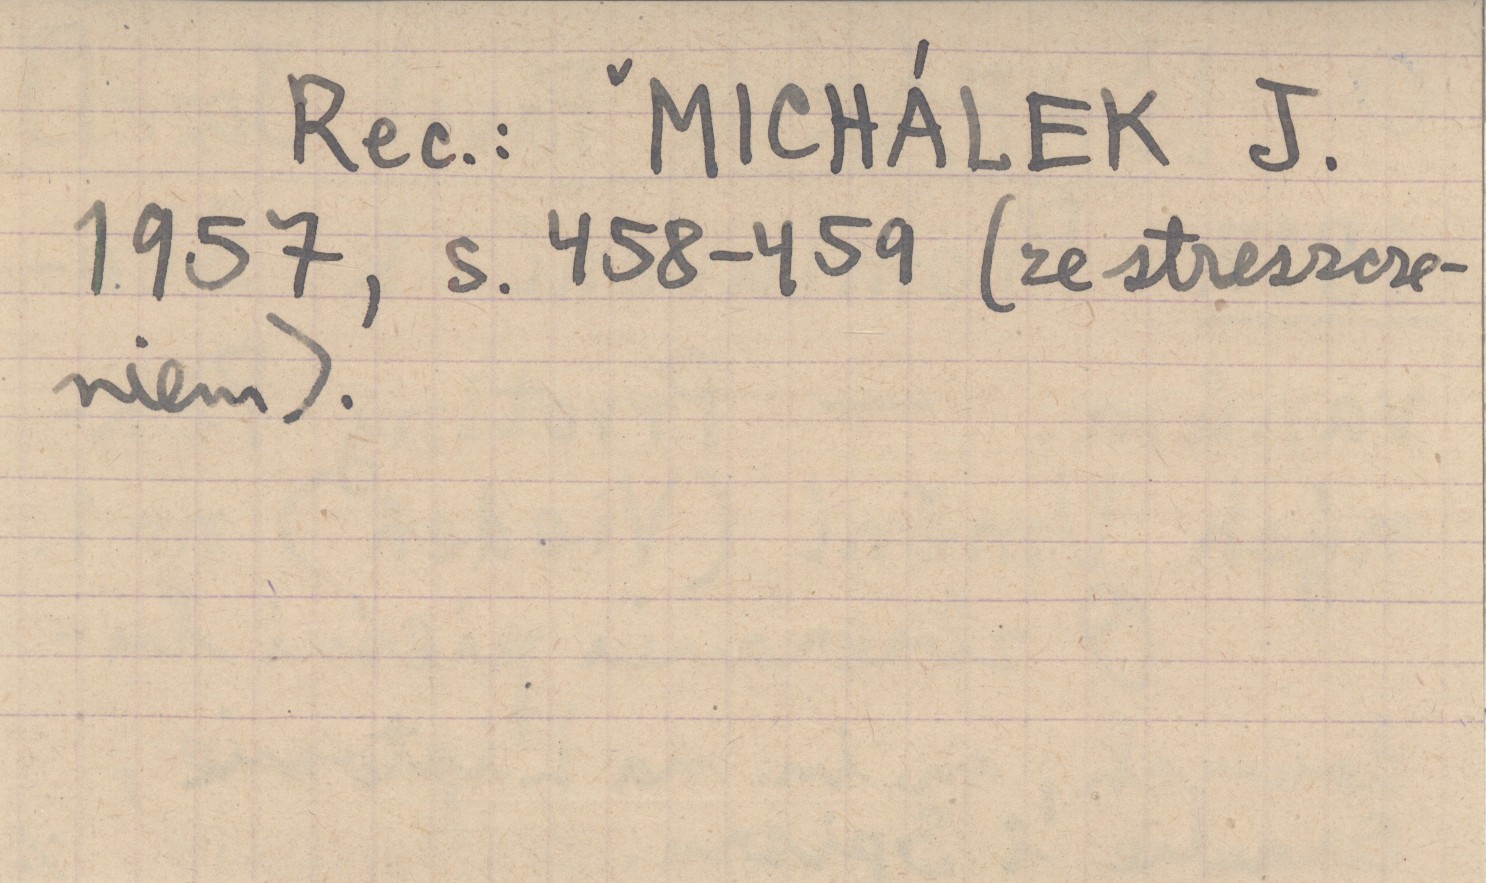 Rec.: ˇMICHÁLEK J.
1957, s. 458-459 (ze streszcze-
niem).